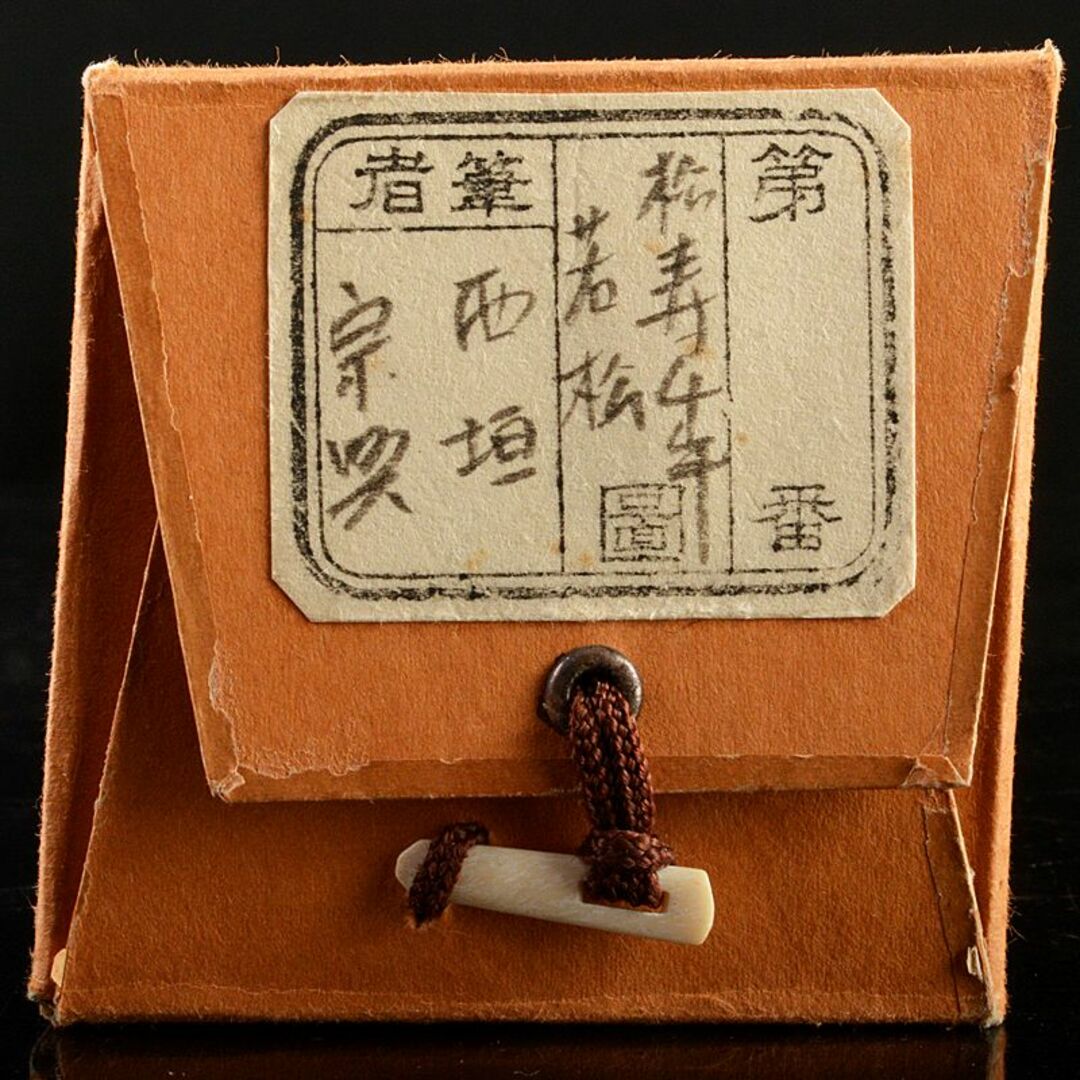 第　番
松寿千年
若松
圖
筆者
西垣
宗興